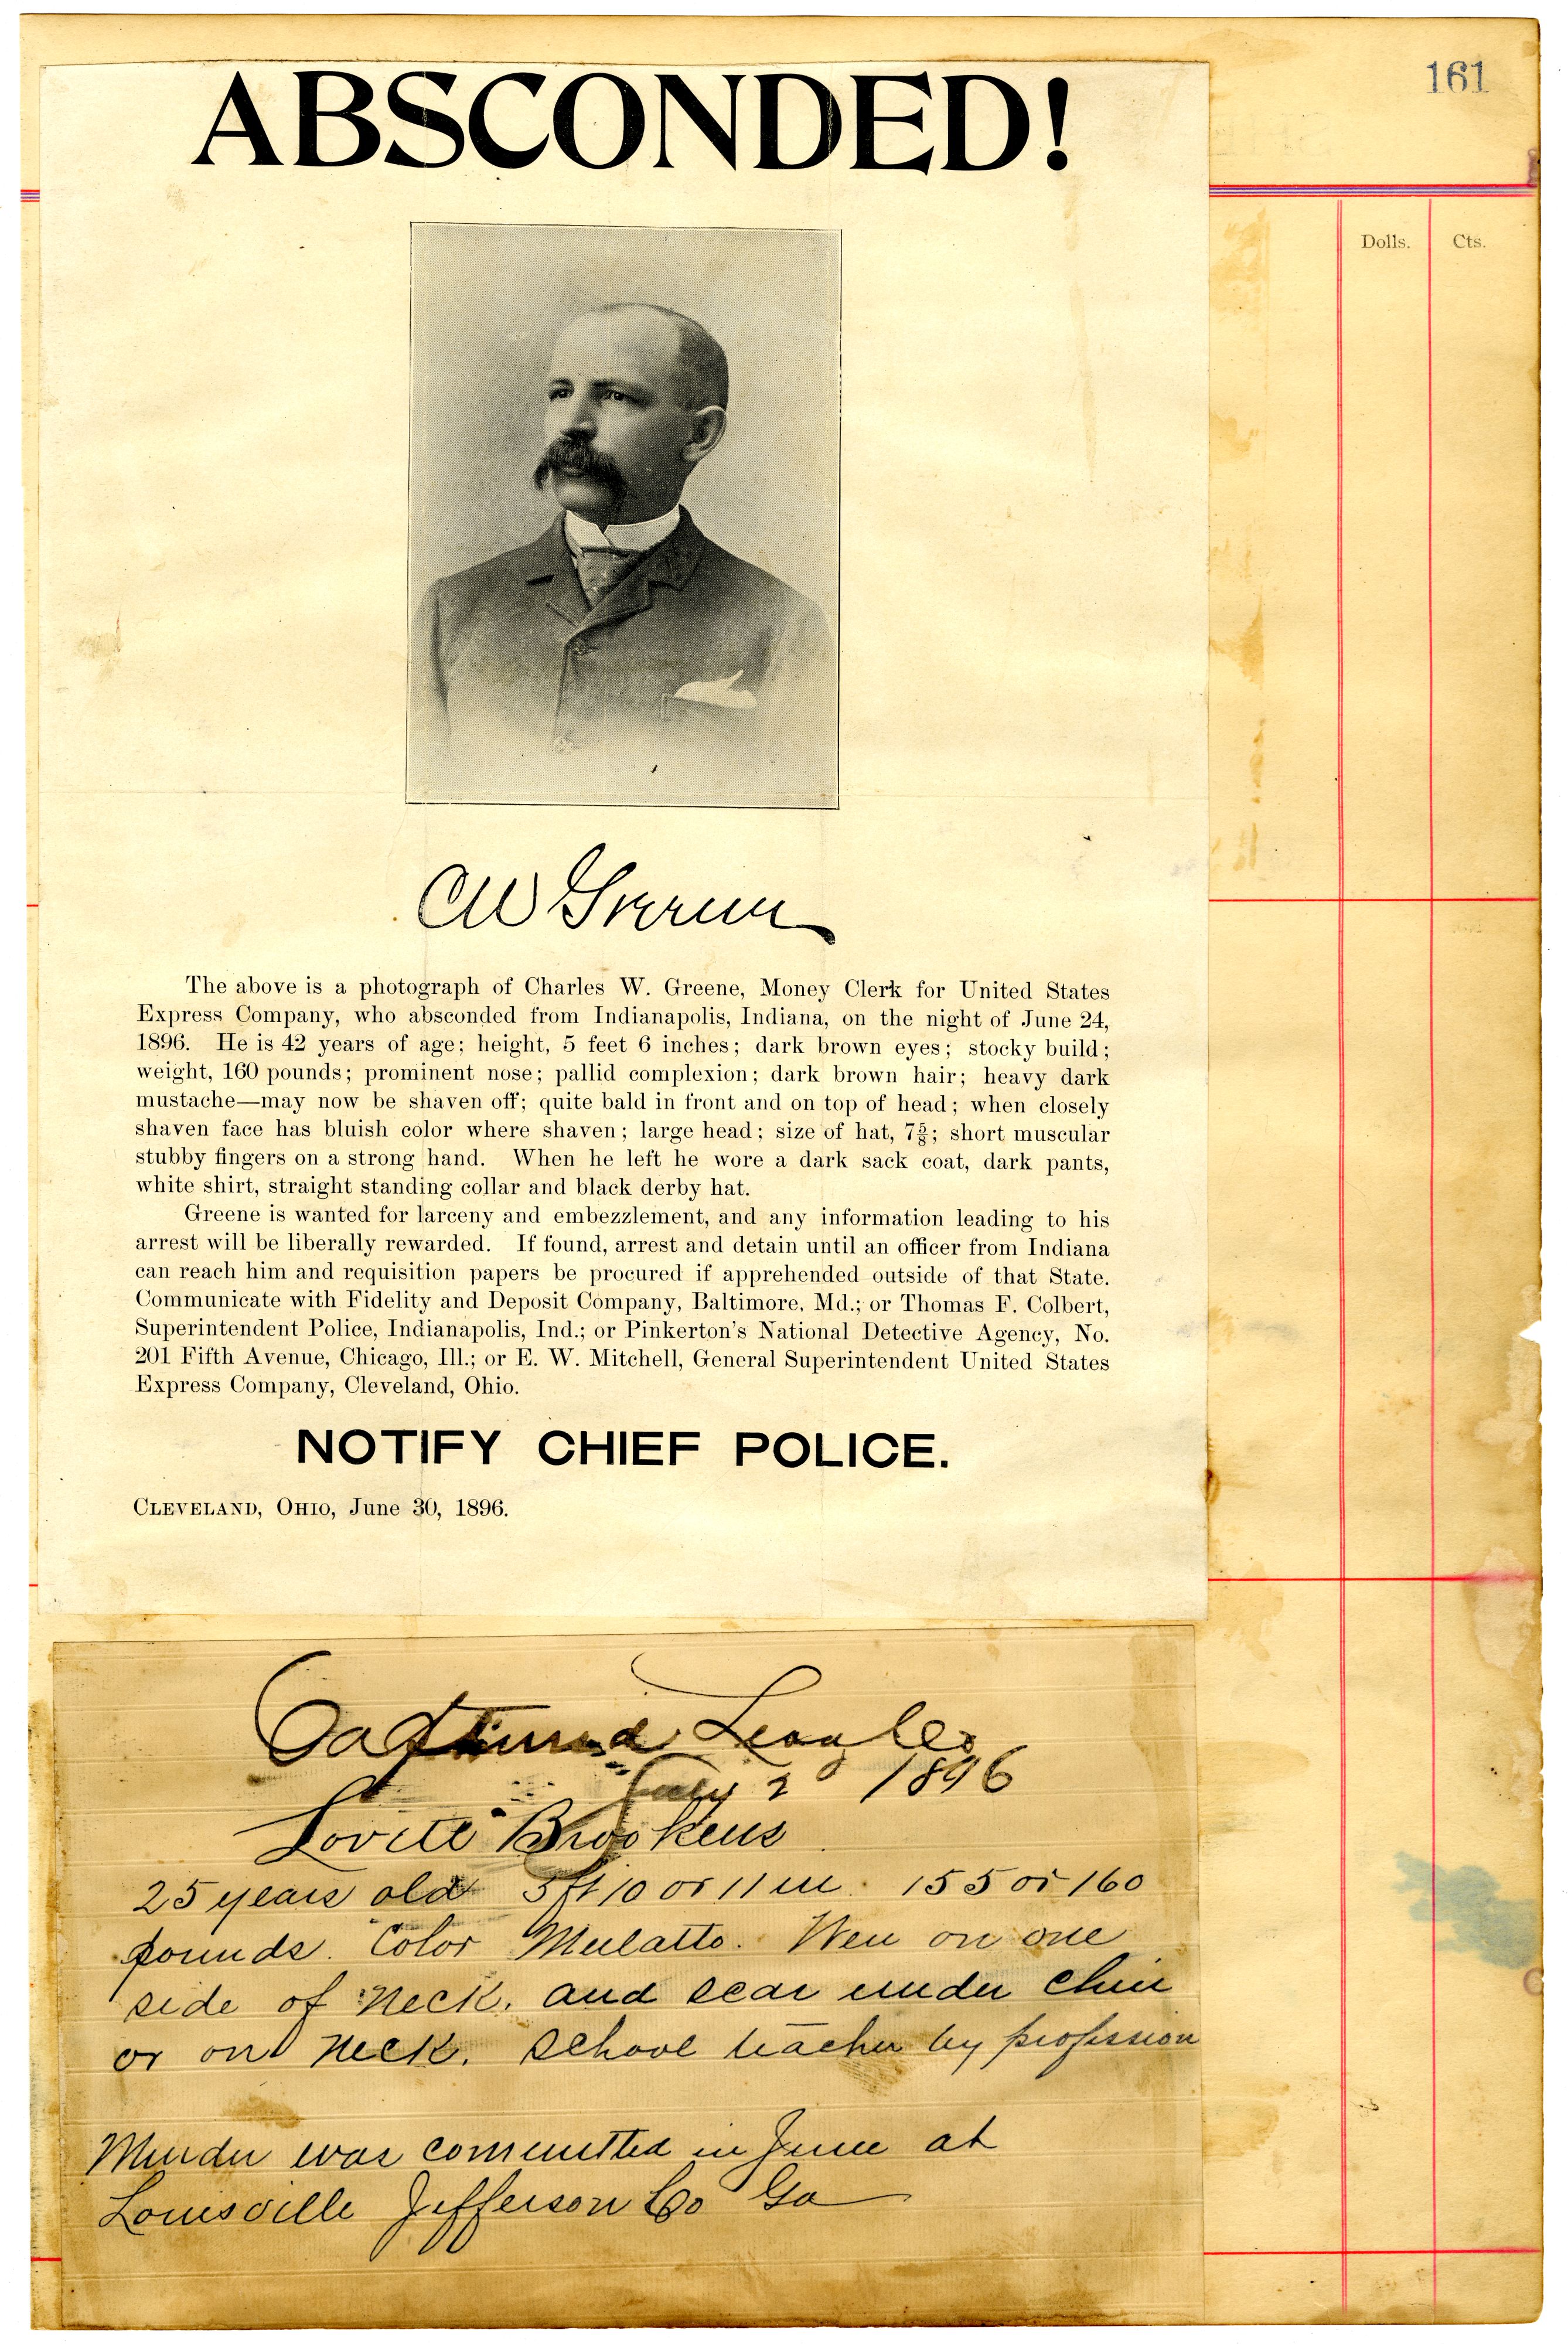 161
ABSCONDED!
Dolls. Cts.
CW Greene
The above is a photograph of Charles W. Greene, Money Clerk for United States
Express Company, who absconded from Indianapolis, Indiana, on the night of June 24,
1896. He is 42 years of age; height, 5 feet 6 inches; dark brown eyes; stocky build;
weight, 160 pounds; prominent nose; pallid complexion; dark brown hair; heavy dark
mustache—may now be shaven off; quite bald in front and on top of head; when closely
shaven face has bluish color where shaven; large head; size of hat, 7⅜; short muscular
stubby fingers on a strong hand. When he left he wore a dark sack coat, dark pants,
white shirt, straight standing collar and black derby hat.
Greene is wanted for larceny and embezzlement, and any information leading to his
arrest will be liberally rewarded. If found, arrest and detain until an officer from Indiana
can reach him and requisition papers be procured if apprehended outside of that State.
Communicate with Fidelity and Deposit Company, Baltimore, Md.; or Thomas F. Colbert,
Superintendent Police, Indianapolis, Ind.; or Pinkerton's National Detective Agency, No.
201 Fifth Avenue, Chicago, Ill.; or E. W. Mitchell, General Superintendent United States
Express Company, Cleveland, Ohio.
NOTIFY CHIEF POLICE.
CLEVELAND, OHIO, June 30, 1896.
July 2 1896
Brookens
25 years old 5 ft 10 or 11 in. 155 or 160
pounds. Color Mulatto. Wen on one
side of Neck. and scar under chin
or on Neck. School teacher by profession
Murder was committed in June at
Louisville Jefferson Co Ga